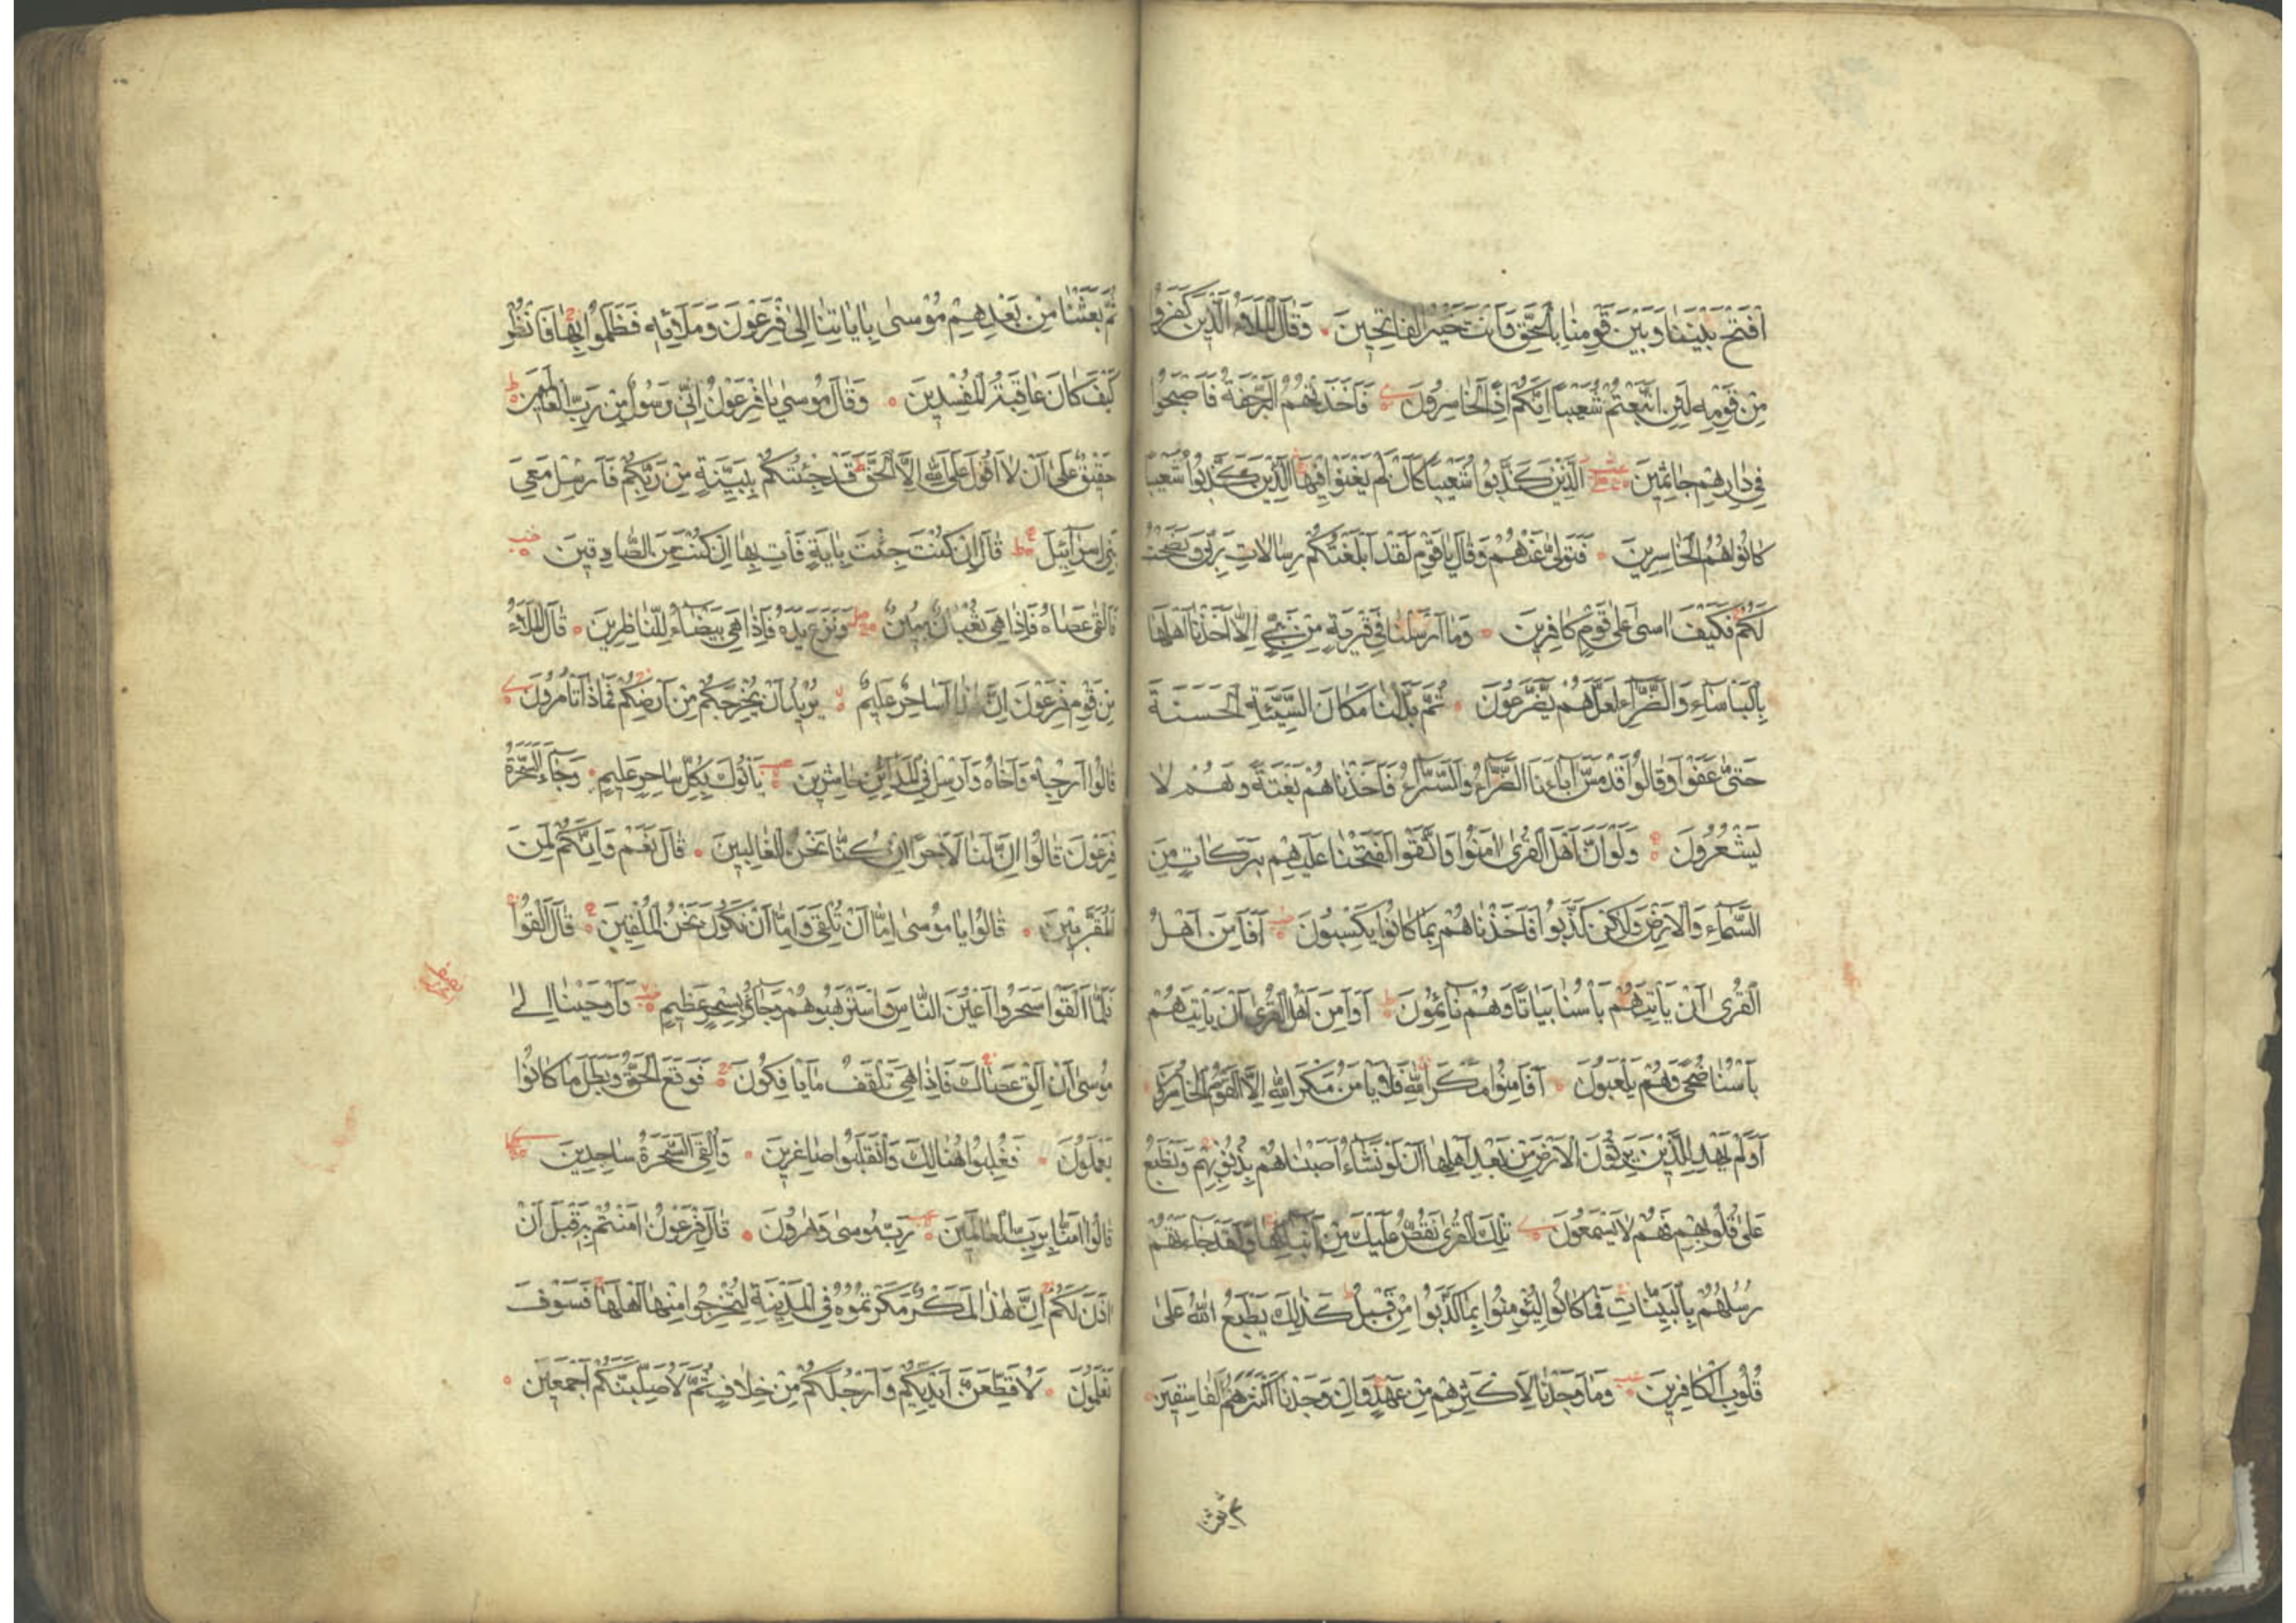 افْتَحْ بَيْنَنَا وَبَيْنَ قَوْمِنَا بِالْحَقِّ وَاَنْتَ خَيْرُ الْفَاتِحِينَ وَقَالَ الْمَلَاُ الَّذِينَ كَفَرُوا
مِنْ قَوْمِهِ لَئِنِ اتَّبَعْتُمْ شُعَيْبًا اِنَّكُمْ اِذًا لَخَاسِرُونَ فَاَخَذَتْهُمُ الرَّجْفَةُ فَاَصْبَحُوا
فِي دَارِهِمْ جَاثِمِينَ الَّذِينَ كَذَّبُوا شُعَيْبًا كَاَنْ لَمْ يَغْنَوْا فِيهَا الَّذِينَ كَذَّبُوا شُعَيْبًا
كَانُوا هُمُ الْخَاسِرِينَ فَتَوَلَّى عَنْهُمْ وَقَالَ يَا قَوْمِ لَقَدْ اَبْلَغْتُكُمْ رِسَالَاتِ رَبِّي وَنَصَحْتُ
لَكُمْ فَكَيْفَ اٰسٰى عَلٰى قَوْمٍ كَافِرِينَ وَمَا اَرْسَلْنَا فِي قَرْيَةٍ مِنْ نَبِيٍّ اِلَّا اَخَذْنَا اَهْلَهَا
بِالْبَاْسَاءِ وَالضَّرَّاءِ لَعَلَّهُمْ يَضَّرَّعُونَ ثُمَّ بَدَّلْنَا مَكَانَ السَّيِّئَةِ الْحَسَنَةَ
حَتّٰى عَفَوْا وَقَالُوا قَدْ مَسَّ اٰبَاءَنَا الضَّرَّاءُ وَالسَّرَّاءُ فَاَخَذْنَاهُمْ بَغْتَةً وَهُمْ لَا
يَشْعُرُونَ وَلَوْ اَنَّ اَهْلَ الْقُرٰى اٰمَنُوا وَاتَّقَوْا لَفَتَحْنَا عَلَيْهِمْ بَرَكَاتٍ مِنَ
السَّمَاءِ وَالْاَرْضِ وَلٰكِنْ كَذَّبُوا فَاَخَذْنَاهُمْ بِمَا كَانُوا يَكْسِبُونَ اَفَاَمِنَ اَهْلُ
الْقُرٰى اَنْ يَاْتِيَهُمْ بَاْسُنَا بَيَاتًا وَهُمْ نَائِمُونَ اَوَاَمِنَ اَهْلُ الْقُرٰى اَنْ يَاْتِيَهُمْ
بَاْسُنَا ضُحًى وَهُمْ يَلْعَبُونَ اَفَاَمِنُوا مَكْرَ اللّٰهِ فَلَا يَاْمَنُ مَكْرَ اللّٰهِ اِلَّا الْقَوْمُ الْخَاسِرُونَ
اَوَلَمْ يَهْدِ لِلَّذِينَ يَرِثُونَ الْاَرْضَ مِنْ بَعْدِ اَهْلِهَا اَنْ لَوْ نَشَاءُ اَصَبْنَاهُمْ بِذُنُوبِهِمْ وَنَطْبَعُ
عَلٰى قُلُوبِهِمْ فَهُمْ لَا يَسْمَعُونَ تِلْكَ الْقُرٰى نَقُصُّ عَلَيْكَ مِنْ اَنْبَائِهَا وَلَقَدْ جَاءَتْهُمْ
رُسُلُهُمْ بِالْبَيِّنَاتِ فَمَا كَانُوا لِيُؤْمِنُوا بِمَا كَذَّبُوا مِنْ قَبْلُ كَذٰلِكَ يَطْبَعُ اللّٰهُ عَلٰى
قُلُوبِ الْكَافِرِينَ وَمَا وَجَدْنَا لِاَكْثَرِهِمْ مِنْ عَهْدٍ وَاِنْ وَجَدْنَا اَكْثَرَهُمْ لَفَاسِقِينَ
ثُمَّ بَعَثْنَا مِنْ بَعْدِهِمْ مُوسٰى بِاٰيَاتِنَا اِلٰى فِرْعَوْنَ وَمَلَائِهِ فَظَلَمُوا بِهَا فَانْظُرْ
كَيْفَ كَانَ عَاقِبَةُ الْمُفْسِدِينَ وَقَالَ مُوسٰى يَا فِرْعَوْنُ اِنِّي رَسُولٌ مِنْ رَبِّ الْعَالَمِينَ
حَقِيقٌ عَلٰى اَنْ لَا اَقُولَ عَلَى اللّٰهِ اِلَّا الْحَقَّ قَدْ جِئْتُكُمْ بِبَيِّنَةٍ مِنْ رَبِّكُمْ فَاَرْسِلْ مَعِيَ
بَنِي اِسْرَائِيلَ قَالَ اِنْ كُنْتَ جِئْتَ بِاٰيَةٍ فَاْتِ بِهَا اِنْ كُنْتَ مِنَ الصَّادِقِينَ
فَاَلْقٰى عَصَاهُ فَاِذَا هِيَ ثُعْبَانٌ مُبِينٌ وَنَزَعَ يَدَهُ فَاِذَا هِيَ بَيْضَاءُ لِلنَّاظِرِينَ قَالَ الْمَلَاُ
مِنْ قَوْمِ فِرْعَوْنَ اِنَّ هٰذَا لَسَاحِرٌ عَلِيمٌ يُرِيدُ اَنْ يُخْرِجَكُمْ مِنْ اَرْضِكُمْ فَمَاذَا تَاْمُرُونَ
قَالُوا اَرْجِهْ وَاَخَاهُ وَاَرْسِلْ فِي الْمَدَائِنِ حَاشِرِينَ يَاْتُوكَ بِكُلِّ سَاحِرٍ عَلِيمٍ وَجَاءَ السَّحَرَةُ
فِرْعَوْنَ قَالُوا اِنَّ لَنَا لَاَجْرًا اِنْ كُنَّا نَحْنُ الْغَالِبِينَ قَالَ نَعَمْ وَاِنَّكُمْ لَمِنَ
الْمُقَرَّبِينَ قَالُوا يَا مُوسٰى اِمَّا اَنْ تُلْقِيَ وَاِمَّا اَنْ نَكُونَ نَحْنُ الْمُلْقِينَ قَالَ اَلْقُوا
فَلَمَّا اَلْقَوْا سَحَرُوا اَعْيُنَ النَّاسِ وَاسْتَرْهَبُوهُمْ وَجَاؤُ بِسِحْرٍ عَظِيمٍ وَاَوْحَيْنَا اِلٰى
مُوسٰى اَنْ اَلْقِ عَصَاكَ فَاِذَا هِيَ تَلْقَفُ مَا يَاْفِكُونَ فَوَقَعَ الْحَقُّ وَبَطَلَ مَا كَانُوا
يَعْمَلُونَ فَغُلِبُوا هُنَالِكَ وَانْقَلَبُوا صَاغِرِينَ وَاُلْقِيَ السَّحَرَةُ سَاجِدِينَ
قَالُوا اٰمَنَّا بِرَبِّ الْعَالَمِينَ رَبِّ مُوسٰى وَهٰرُونَ قَالَ فِرْعَوْنُ اٰمَنْتُمْ بِهِ قَبْلَ اَنْ
اٰذَنَ لَكُمْ اِنَّ هٰذَا لَمَكْرٌ مَكَرْتُمُوهُ فِي الْمَدِينَةِ لِتُخْرِجُوا مِنْهَا اَهْلَهَا فَسَوْفَ
تَعْلَمُونَ لَاُقَطِّعَنَّ اَيْدِيَكُمْ وَاَرْجُلَكُمْ مِنْ خِلَافٍ ثُمَّ لَاُصَلِّبَنَّكُمْ اَجْمَعِينَ